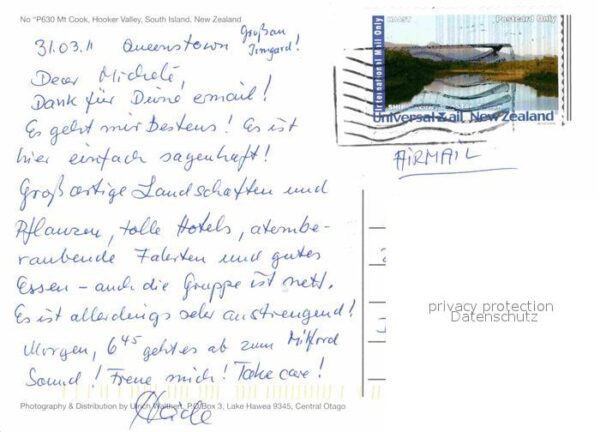 No °P630 Mt Cook, Hooker Valley, South Island, New Zealand
31.03.11 Queenstown
Großan
Irmgard!
Dear Michele,
Dank für Deine email!
Es geht mir Bestens! Es ist
hier einfach sagenhaft!
Großartige Landschaften und
Pflanzen, tolle Hotels, atembe-
raubende Fahrten und gutes
Essen – auch die Gruppe ist nett.
Es ist allerdings sehr anstrengend!
Morgen, 6 45 geht es ab zum Milford
Sound! Freue mich! Take care!
Heide
Photography & Distribution by Ulrich P.O.Box 3, Lake Hawea 9345, Central Otago
Postcard Only
International Mail Only
Universal Mail New Zealand
AIRMAIL
privacy protection
Datenschutz